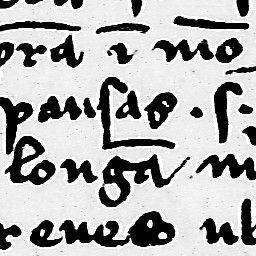 ora i mo
pausas . s.
longa m
reues ub